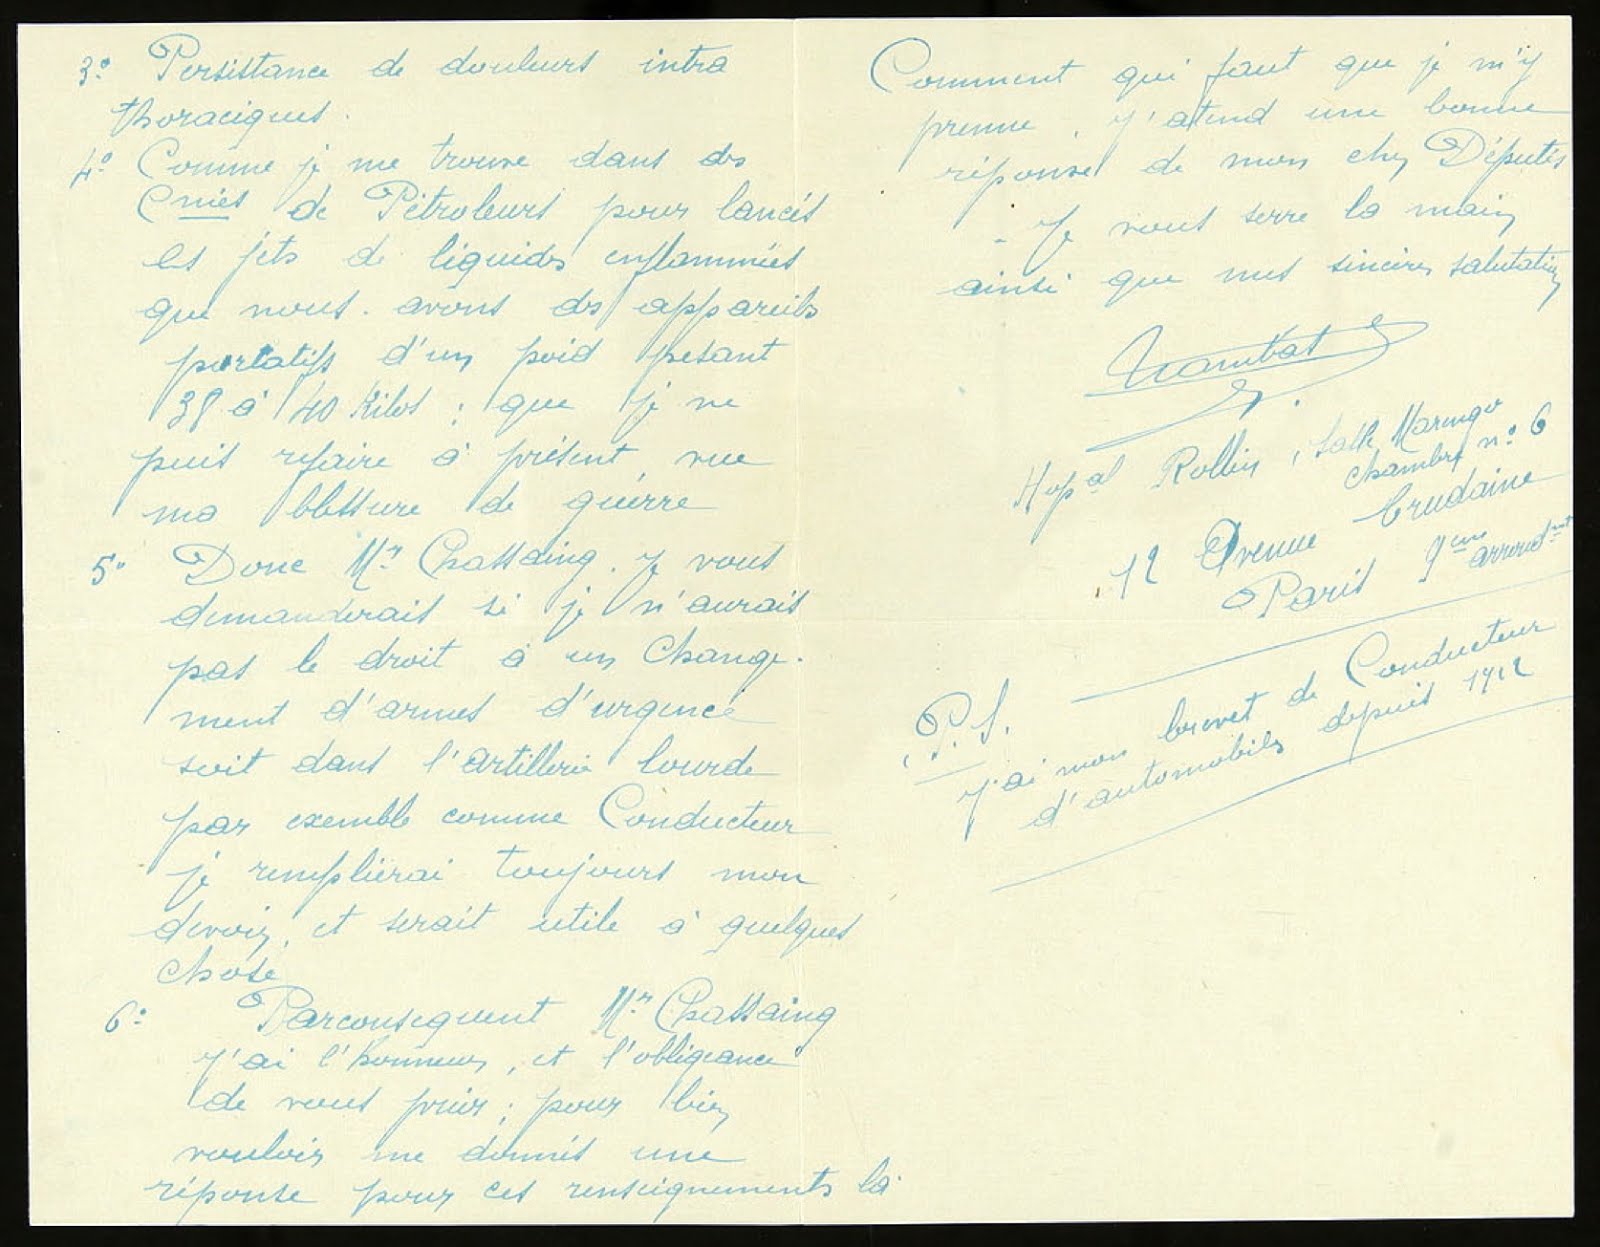 3º Persistance de douleurs intra
thoraciques.
4º Comme je me trouve dans des
Cnies de Pétroleurs pour lancés
les jets de liquides enflammées
que nous. avons des appareils
portatifs d'un poid pesant
38 à 40 Kilos ; que je ne
puis refaire à présent, vue
ma blessure de guérre
5º Donc Mr Chassaing. Je vous
demanderais si je n'aurais
pas le droit à un Change-
ment d'armes d'urgence
soit dans l'artillerie lourde
par exemble comme Conducteur
je remplierai toujours mon
devoir, et serait utile à quelques
chose
6º Parconsequent Mr Chassaing
J'ai l'honneur, et l'obligeance
de vous prier ; pour bien
vouloir me donnés une
réponse pour ces renseignements là
Comment qui faut que je m'y
prenne, J'attend une bonne
réponse de mon cher Députés
- Je vous serre la main
ainsi que mes sincères salutation
Hopal Rollin, Salle Marengo
Chambre nº 6
12 Avenue Trudaine
Paris 9eme arrondmt
P.S.
J'ai mon brevet de Conducteur
d'automobiles depuis 1912